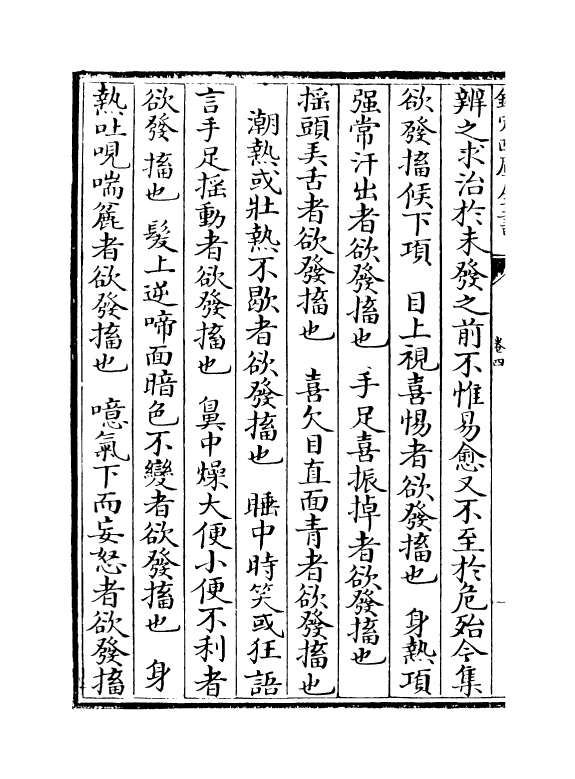 欽定四庫全書
卷四
辨之求治於未發之前不惟易愈又不至於危殆今集
欲發搐候下項　目上視喜惕者欲發搐也　身熱項
强常汗出者欲發搐也　手足喜振掉者欲發搐也
揺頭弄舌者欲發搐也　喜欠目直面青者欲發搐也
潮熱或壯熱不歇者欲發搐也　睡中時笑或狂語
言手足揺動者欲發搐也　鼻中燥大便小便不利者
欲發搐也　髮上逆啼面暗色不變者欲發搐也　身
熱吐哯喘麄者欲發搐也　噫氣下而妄怒者欲發搐